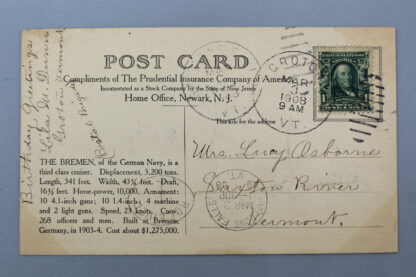 POST CARD
Compliments of The Prudential Insurance Company of America
Incorporated as a Stock Company by the State of New Jersey
Home Office, Newark, N. J.
This side for the address
THE BREMEN, of the German Navy, is a
third class cruiser. Displacement, 3,200 tons.
Length, 341 feet. Width, 43¾ feet. Draft,
16⅖ feet. Horse-power, 10,000. Armament:
10 4.1-inch guns; 10 1.4-inch; 4 machine
and 2 light guns. Speed, 23 knots. Crew,
268 officers and men. Built at Bremen,
Germany, in 1903-4. Cost about $1,275,000.
Birthday Greetings
Lila M. Dunn
Groton Vermont
GROTON
MAR
1908
9 AM
VT.
Mrs. Lucy Osborne
Saxton River
Vermont.
FALLS
MAR 3
VT.